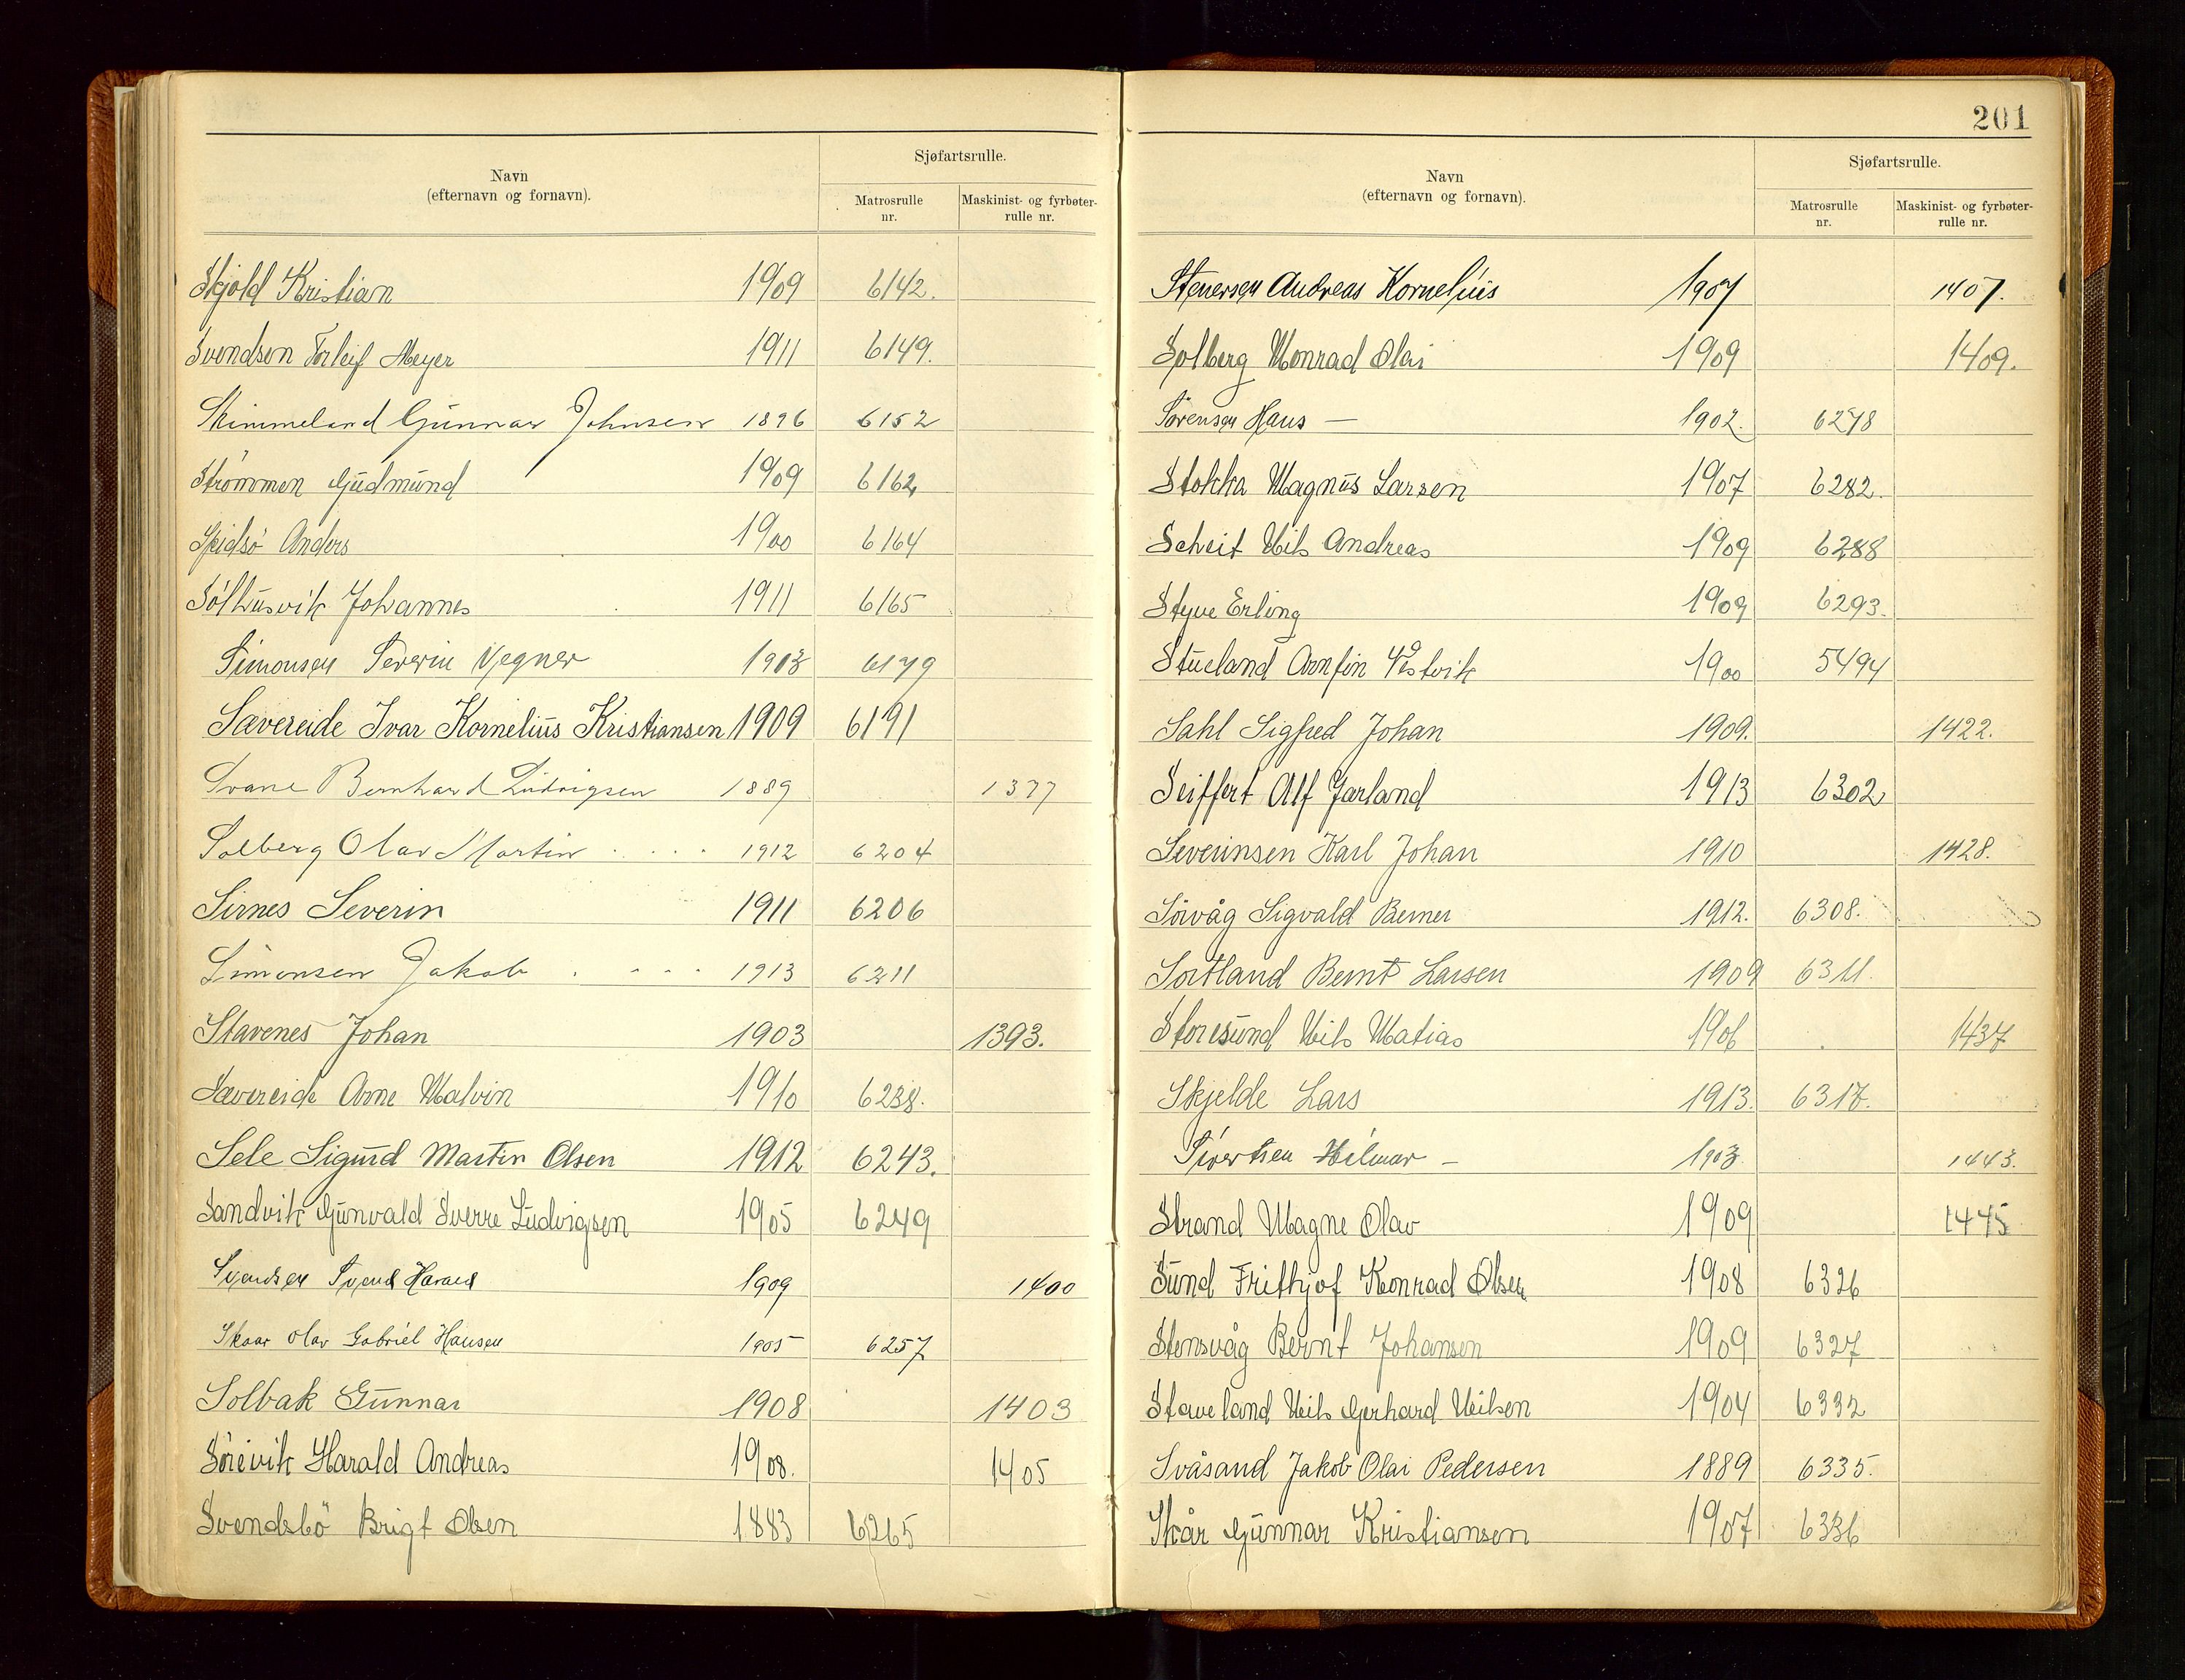 201
Sjøfartsrulle.
Navn
(efternavn og fornavn).
Matrosrulle nr.
Maskinist- og fyrbøter-rulle nr.
Skjold Kristian 1909 6142.
Svendsen Torleif Meyer 1911 6149.
Skimmeland Gunnar Johnsen 1896 6152
Strömmen Gudmund 1909 6162
Skidsö Anders 1900 6164
Sölhusvik Johannes 1911 6165
Simonsen Severin Vegner 1903 6179
Sævereide Ivar Kornelius Kristiansen 1909 6191
Svane Bernhard Ludvigsen 1889 1377
Solberg Olav Martin 1912 6204
Sirnes Severin 1911 6206
Simonsen Jakob 1913 6211
Stavenes Johan 1903 1393.
Sævereide Arne Malvin 1910 6238.
Sele Sigurd Martin Olsen 1912 6243.
Sandvik Gunvald Sverre Ludvigsen 1905 6249
Svendsen Svend Harald 1909 1400
Skaar Olav Gabriel Hansen 1905 6257
Solbak Gunnar 1908 1403
Sörevik Harald Andreas 1908. 1405
Svendsbö Brigt Olsen 1883 6265
Sjøfartsrulle.
Navn
(efternavn og fornavn).
Matrosrulle nr.
Maskinist- og fyrbøter-rulle nr.
Stenersen Andreas Kornelius 1907 1407.
Solberg Monrad Olai 1909 1409.
Sörensen Hans — 1902. 6278
Stokka Magnus Larsen 1907 6282.
Scheit Nils Andreas 1909 6288
Styve Erling 1909 6293.
Stueland Arnfin Vestvik 1900 5494
Sahl Sigfred Johan 1909. 1422.
Seiffert Alf Jarland 1913 6302
Severinsen Karl Johan 1910 1428.
Sörvåg Sigvald Berner 1912. 6308.
Sortland Bernt Larsen 1909 6311.
Storesund Nils Matias 1906 1437
Skjelde Lars 1913. 6317.
Sivertsen Hilmar – 1903 1443.
Strand Magne Olav 1909 1445
Sund Frithjof Konrad Olsen 1908 6326
Stensvåg Bernt Johansen 1909 6327
Staveland Nils Gerhard Nilsen 1904 6332
Svåsand Jakob Olai Pedersen 1889 6335.
Skår Gunnar Kristiansen 1907 6336